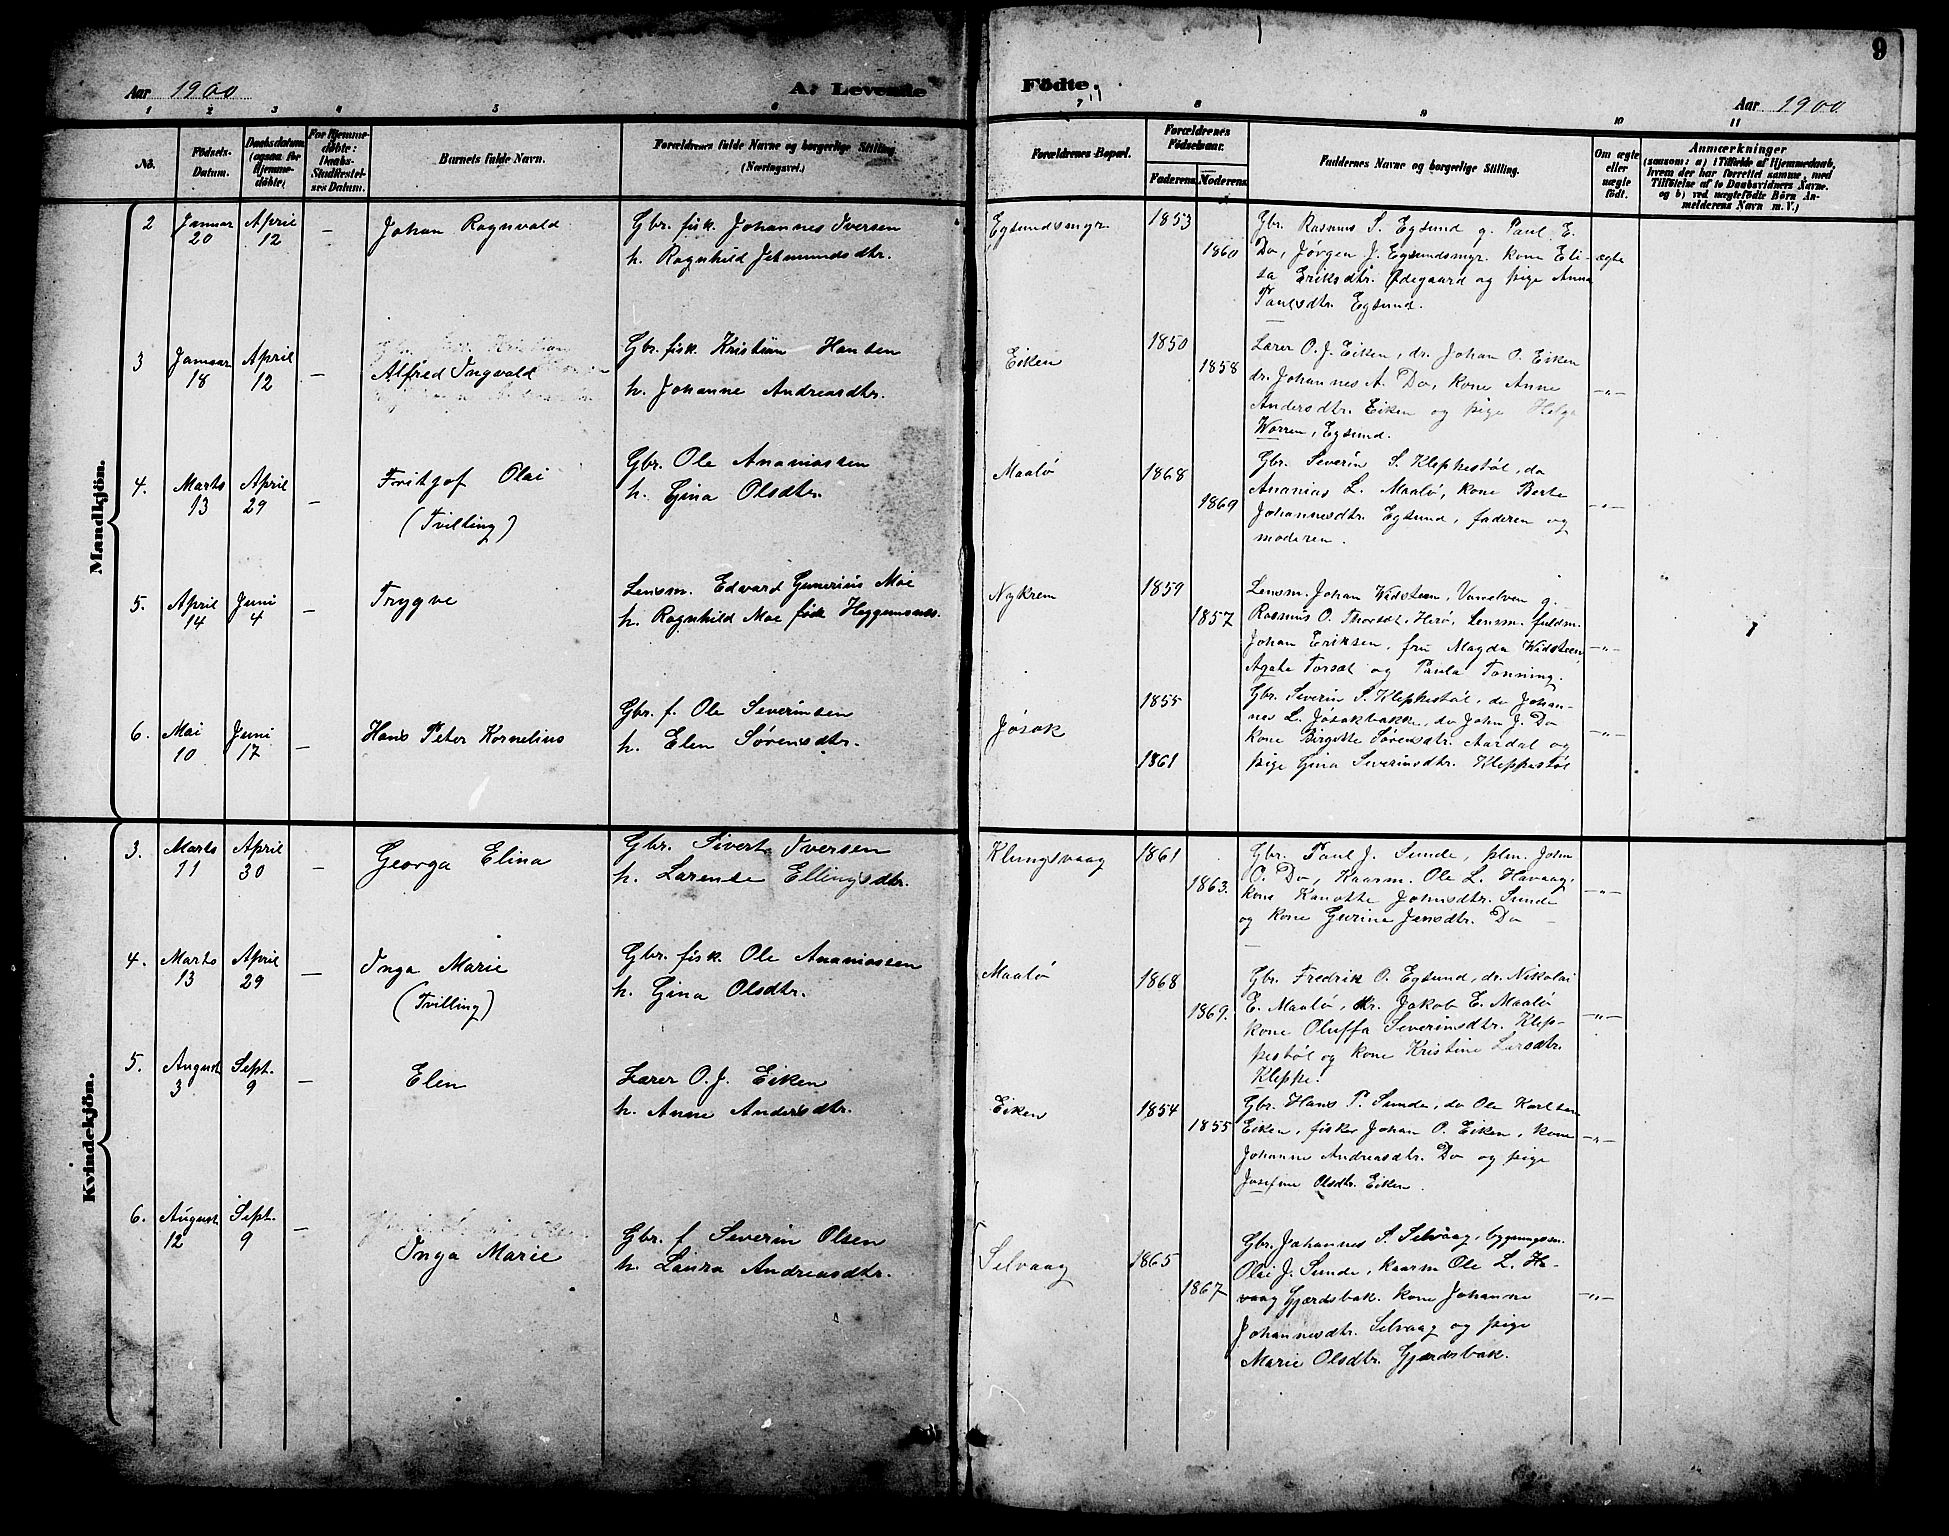 9
Aar 1900 A. Levende Födte. Aar 1900.
1 2 3 4 5 6 7 8 9 10 11
No. Födsels-Datum. Daabsdatum (ogsaa for Hjemmedöbte) For Hjemmedöbte: Daabs-Stadfæstelses Datum. Barnets fulde Navn. Forældrenes fulde Navne og borgerlige Stilling. (Næringsvei.) Forældrenes Bopæl. Forældrenes Födselsaar. Faderens Moderens Faddernes Navne og borgerlige Stilling. Om ægte eller uægte födt. Anmærkninger
(saasom: a) i Tilfælde af Hjemmedaab, hvem der har forrettet samme, med Tilföielse af to Daabsvidners Navne, og b) ved uægtefödte Börn Anmelderens Navn m. V.)
Mandkjön.
2 Januar 20 April 12 — Johan Ragnvald
Gbr. fisk. Johannes Iversen
h. Ragnhild Jetmundsdtr.
Egsundsmyr. 1853 1860
Gbr. Rasmus S. Egsund g. Paul E.
Do, Jørgen J. Egsundsmyr. kone Eli-
sa Eriksdtr. Ødegaard og pige Anna
Paulsdtr. Egsund.
ægte
3 Januar 18 April 12 — Alfred Ingvald
Gbr. fisk. Kristian Hansen
h. Johanne Andreasdtr.
Eiken 1850 1858
Lærer O. J. Eiken, dr. Johan O. Eiken
dr. Johannes A. Do, kone Anne
Andersdtr. Eiken og pige Helga
Worren, Egsund.
—"—
4. Marts 13 April 29 — Fritjof Olai
(Tvilling)
Gbr. Ole Ananiassen
h. Gina Olsdtr.
Maalø 1868 1869
Gbr. Severin S. Kleppestøl, do
Ananias L. Maalø, kone Berte
Johannesdtr. Egsund, faderen og
moderen.
—"—
5. April 14 Juni 4 — Trygve
Lensm. Edvard Gunerius Moe
h. Ragnhild Moe født Heggemsnes.
Nykrem 1859 1857
Lensm. Johan Widsteen, Vanelven g.
Rasmus O. Thorsdt, Herø, Lensm. fuldm.
Johan Eriksen, fru Magda Widsteen,
Agate Torsæt og Paula Tonning.
—"—
6. Mai 10 Juni 17 — Hans Peter Kornelius
Gbr. f. Ole Severinsen
h. Elen Sørensdtr.
Jøsok 1855 1861
Gbr. Severin S. Kleppestøl, do Johan-
nes L. Jøsokbakke, do John J. Do
kone Birgitte Sørensdtr. Aardal og
pige Gina Severinsdtr. Kleppestøl
—"—
Kvindekjön.
3. Marts 11 April 30 — Georga Elina
Gbr. Sivert Iversen
h. Larense Ellingsdtr.
Klungsvaag 1861 1863.
Gbr. Paul J. Sunde, plm. John
O. Do, Kaarm. Ole L. Havaag,
kone Kanutte Johnsdtr. Sunde
og kone Gurine Jensdtr. Do
—"—
4. Marts 13 April 29 — Inga Marie
(Tvilling)
Gbr. fisk. Ole Ananiassen
h. Gina Olsdtr.
Maalø 1868 1869.
Gbr. Fredrik O. Egsund, dr. Nikolai
E. Maalø, dr. Jakob E. Maalø
kone Oluffa Severinsdtr. Klep-
pestøl og kone Kristine Larsdtr.
Kleppe.
—"—
5. August 3 Sept. 9 — Elen
Lærer O. J. Eiken
h. Anne Andersdtr.
Eiken 1854 1855
Gbr. Hans P. Sunde, do Ole Karlsen
Eiken, fisker Johan O. Eiken, kone
Johanne Andreasdtr. Do og pige
Josefine Olsdtr. Eiken.
—"—
6. August 12 Sept. 9 — Inga Marie
Gbr. f. Severin Olsen
h. Laura Andreasdtr.
Selvaag 1865 1867
Gbr. Johannes S. Selvaag, bygningssm.
Olai J. Sunde, kaarm Ole L. Ha-
vaag Gjærdsbak. kone Johanne
Johannesdtr. Selvaag og pige
Marie Olsdtr. Gjerdsbak.
—"—